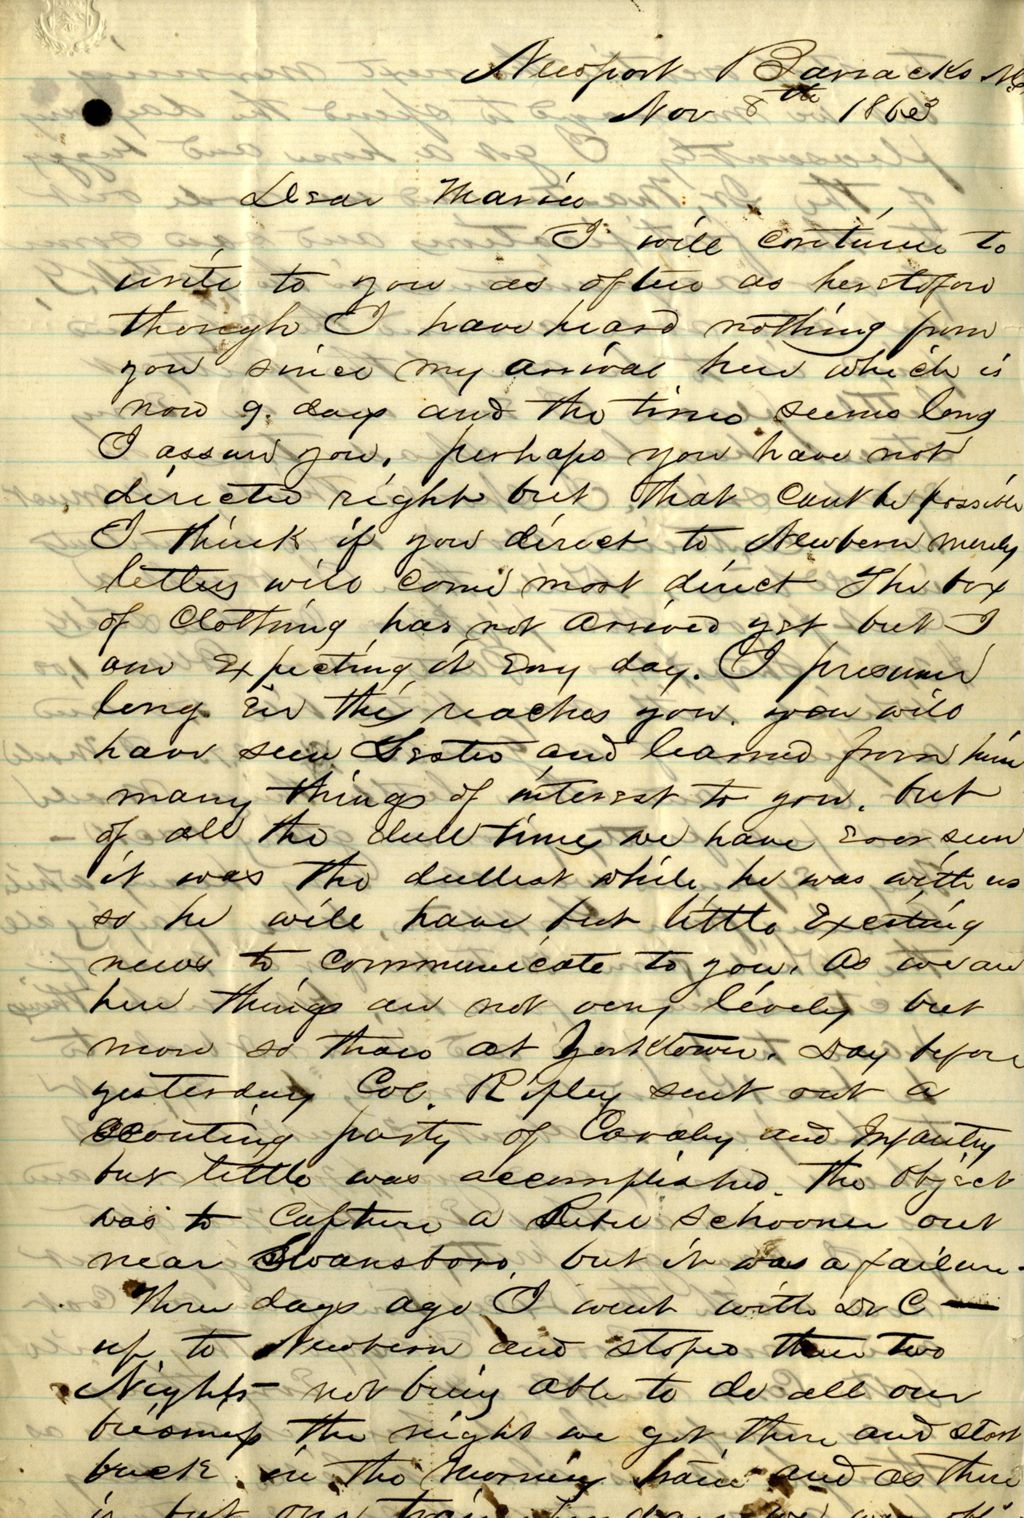 Newport Barracks N.C.
Nov 8th 1863
Dear Marrie
I will continue to
write to you as often as heretofore
though I have heard nothing from
you since my arrival here which is
now 9. days and the time seems long
I assure you. perhaps you have not
directed right but that cant be possible
I think if you direct to Newbern merely
letters will come most direct The box
of clothing has not arrived yet but I
am expecting it evry day. I presume
long ere this reaches you. you will
have seen and learned from him
many things of interest to you. but
of all the dull times we have ever seen
it was the dullest while he was with us
so he will have but little exciting
news to communicate to you. As we are
here things are not very lively but
more so than at Yorktown. Day before
yesterday Col. Ripley sent out a
scouting party of Cavalry and Infantry
but little was accomplished. The object
was to capture a Rebel schooner out
near Swansboro, but it was a failure.
Three days ago I went with Dr C—
up to Newbern and stoped there two
Nights not being able to do all our
business the night we got there and start
back in the morning train and as there
is but one train